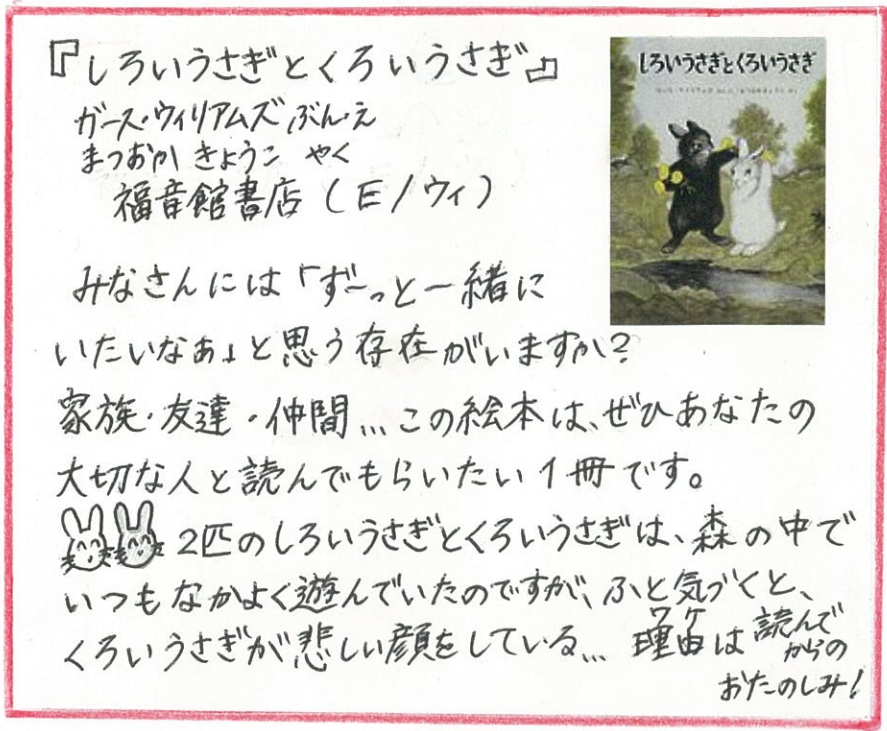 『しろいうさぎとくろいうさぎ』
ガース・ウィリアムズ ぶん・え
まつおか きょうこ やく
福音館書店（E/ウィ）
しろいうさぎとくろいうさぎ
みなさんには「ず〜っと一緒に
いたいなぁ」と思う存在がいますか？
家族・友達・仲間…この絵本は、ぜひあなたの
大切な人と読んでもらいたい1冊です。
2匹のしろいうさぎとくろいうさぎは、森の中で
いつもなかよく遊んでいたのですが、ふと気づくと、
くろいうさぎが悲しい顔をしている… 理由は読んで
ワケ
からの
おたのしみ！